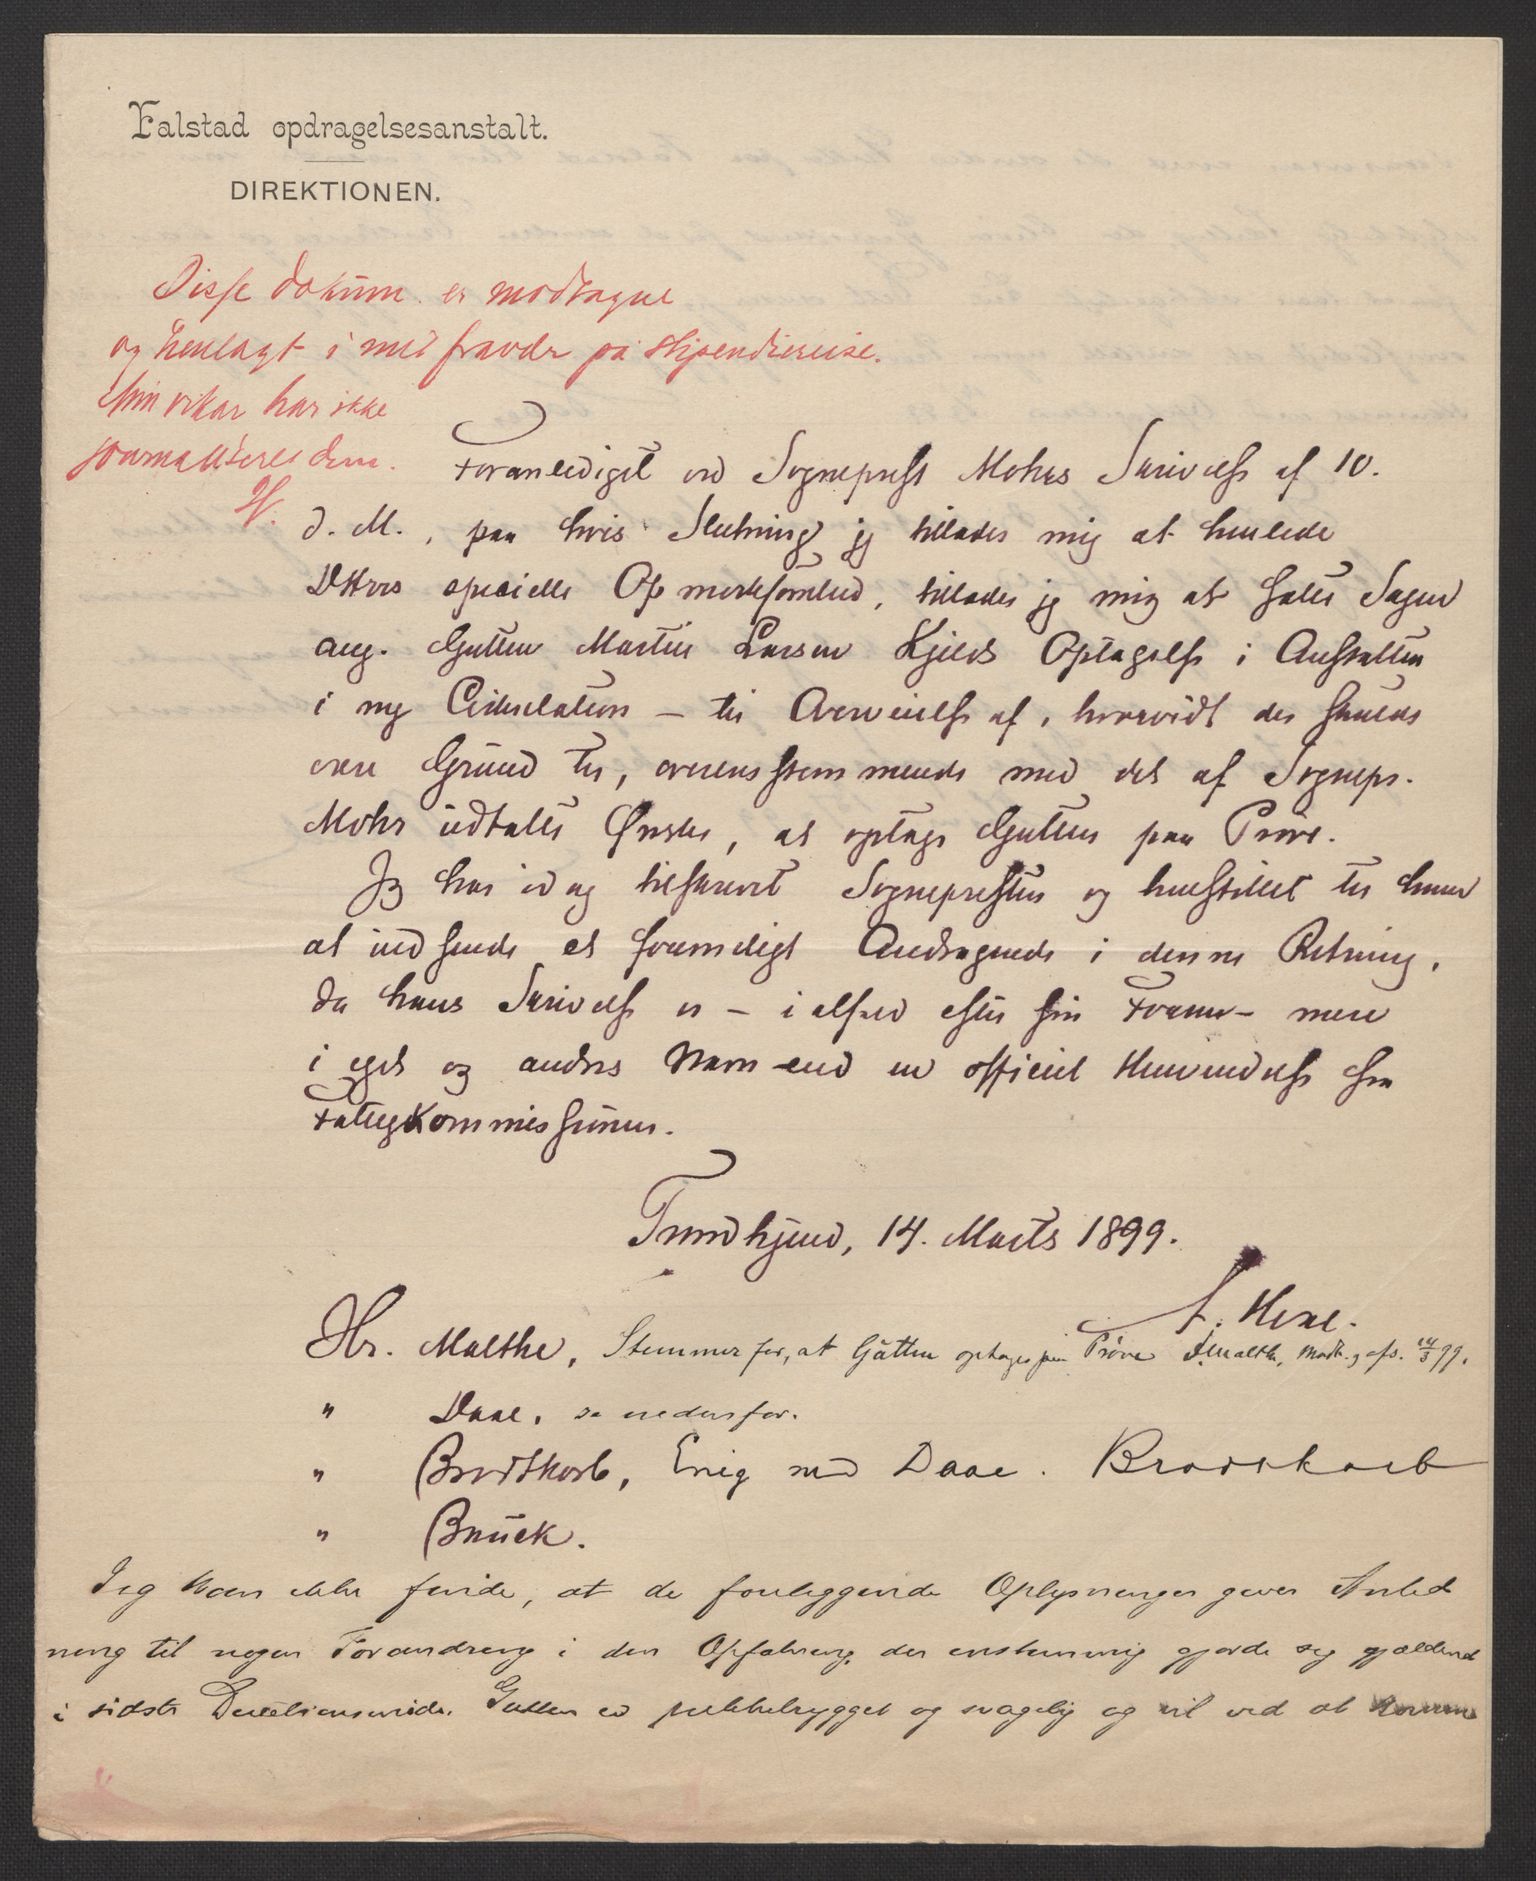 Falstad opdragelsesanstalt.
DIREKTIONEN.
Disse dokum. er modtagne
og henlagt i mit fravær på stipendiereise.
Min vikar har ikke
journaliseret dem.
H.
Foranlediget ved Sogneprest Mohrs Skrivelse af 10.
d. M., paa hvis Slutning jeg tillader mig at henlede
DHrrs specielle Opmerksomhed, tillader jeg mig at sætte Sagen
ang. Gutten Martin Larsen Kjelds Optagelse i Anstalten
i ny Cirkulation – til Overveielse af, hvorvidt der skulde
være Grund til, overensstemmende med det af Sognepr.
Mohr udtalte Ønske, at optage Gutten paa Prøve.
Jeg har idag tilskrevet Sognepresten og henstillet til ham
at indsende et formeligt Andragende i denne Retning,
da hans Skrivelse er – i alfald efter sin Form – mere
i eget og andres Navn end en officiel Henvendelse fra
Fattigkommissionen.
Trondhjem, 14. Marts 1899.
Hr. Malthe, Stemmer for, at Gutten optages paa Prøve Malthe, Modt. og afs. 14/3 99.
" Daae, se nedenfor.
" Brodtkorb, Enig med Daae. Brodtkorb
" Bruck.
Jeg kan ikke finde, at de foreliggende Oplysninger giver Anled
ning til nogen Forandring i den Opfatning, der enstemmig gjorde sig gjældende
i sidste Direktionsmøde. Gutten er pukkelrygget og svagelig og vil ved at komme